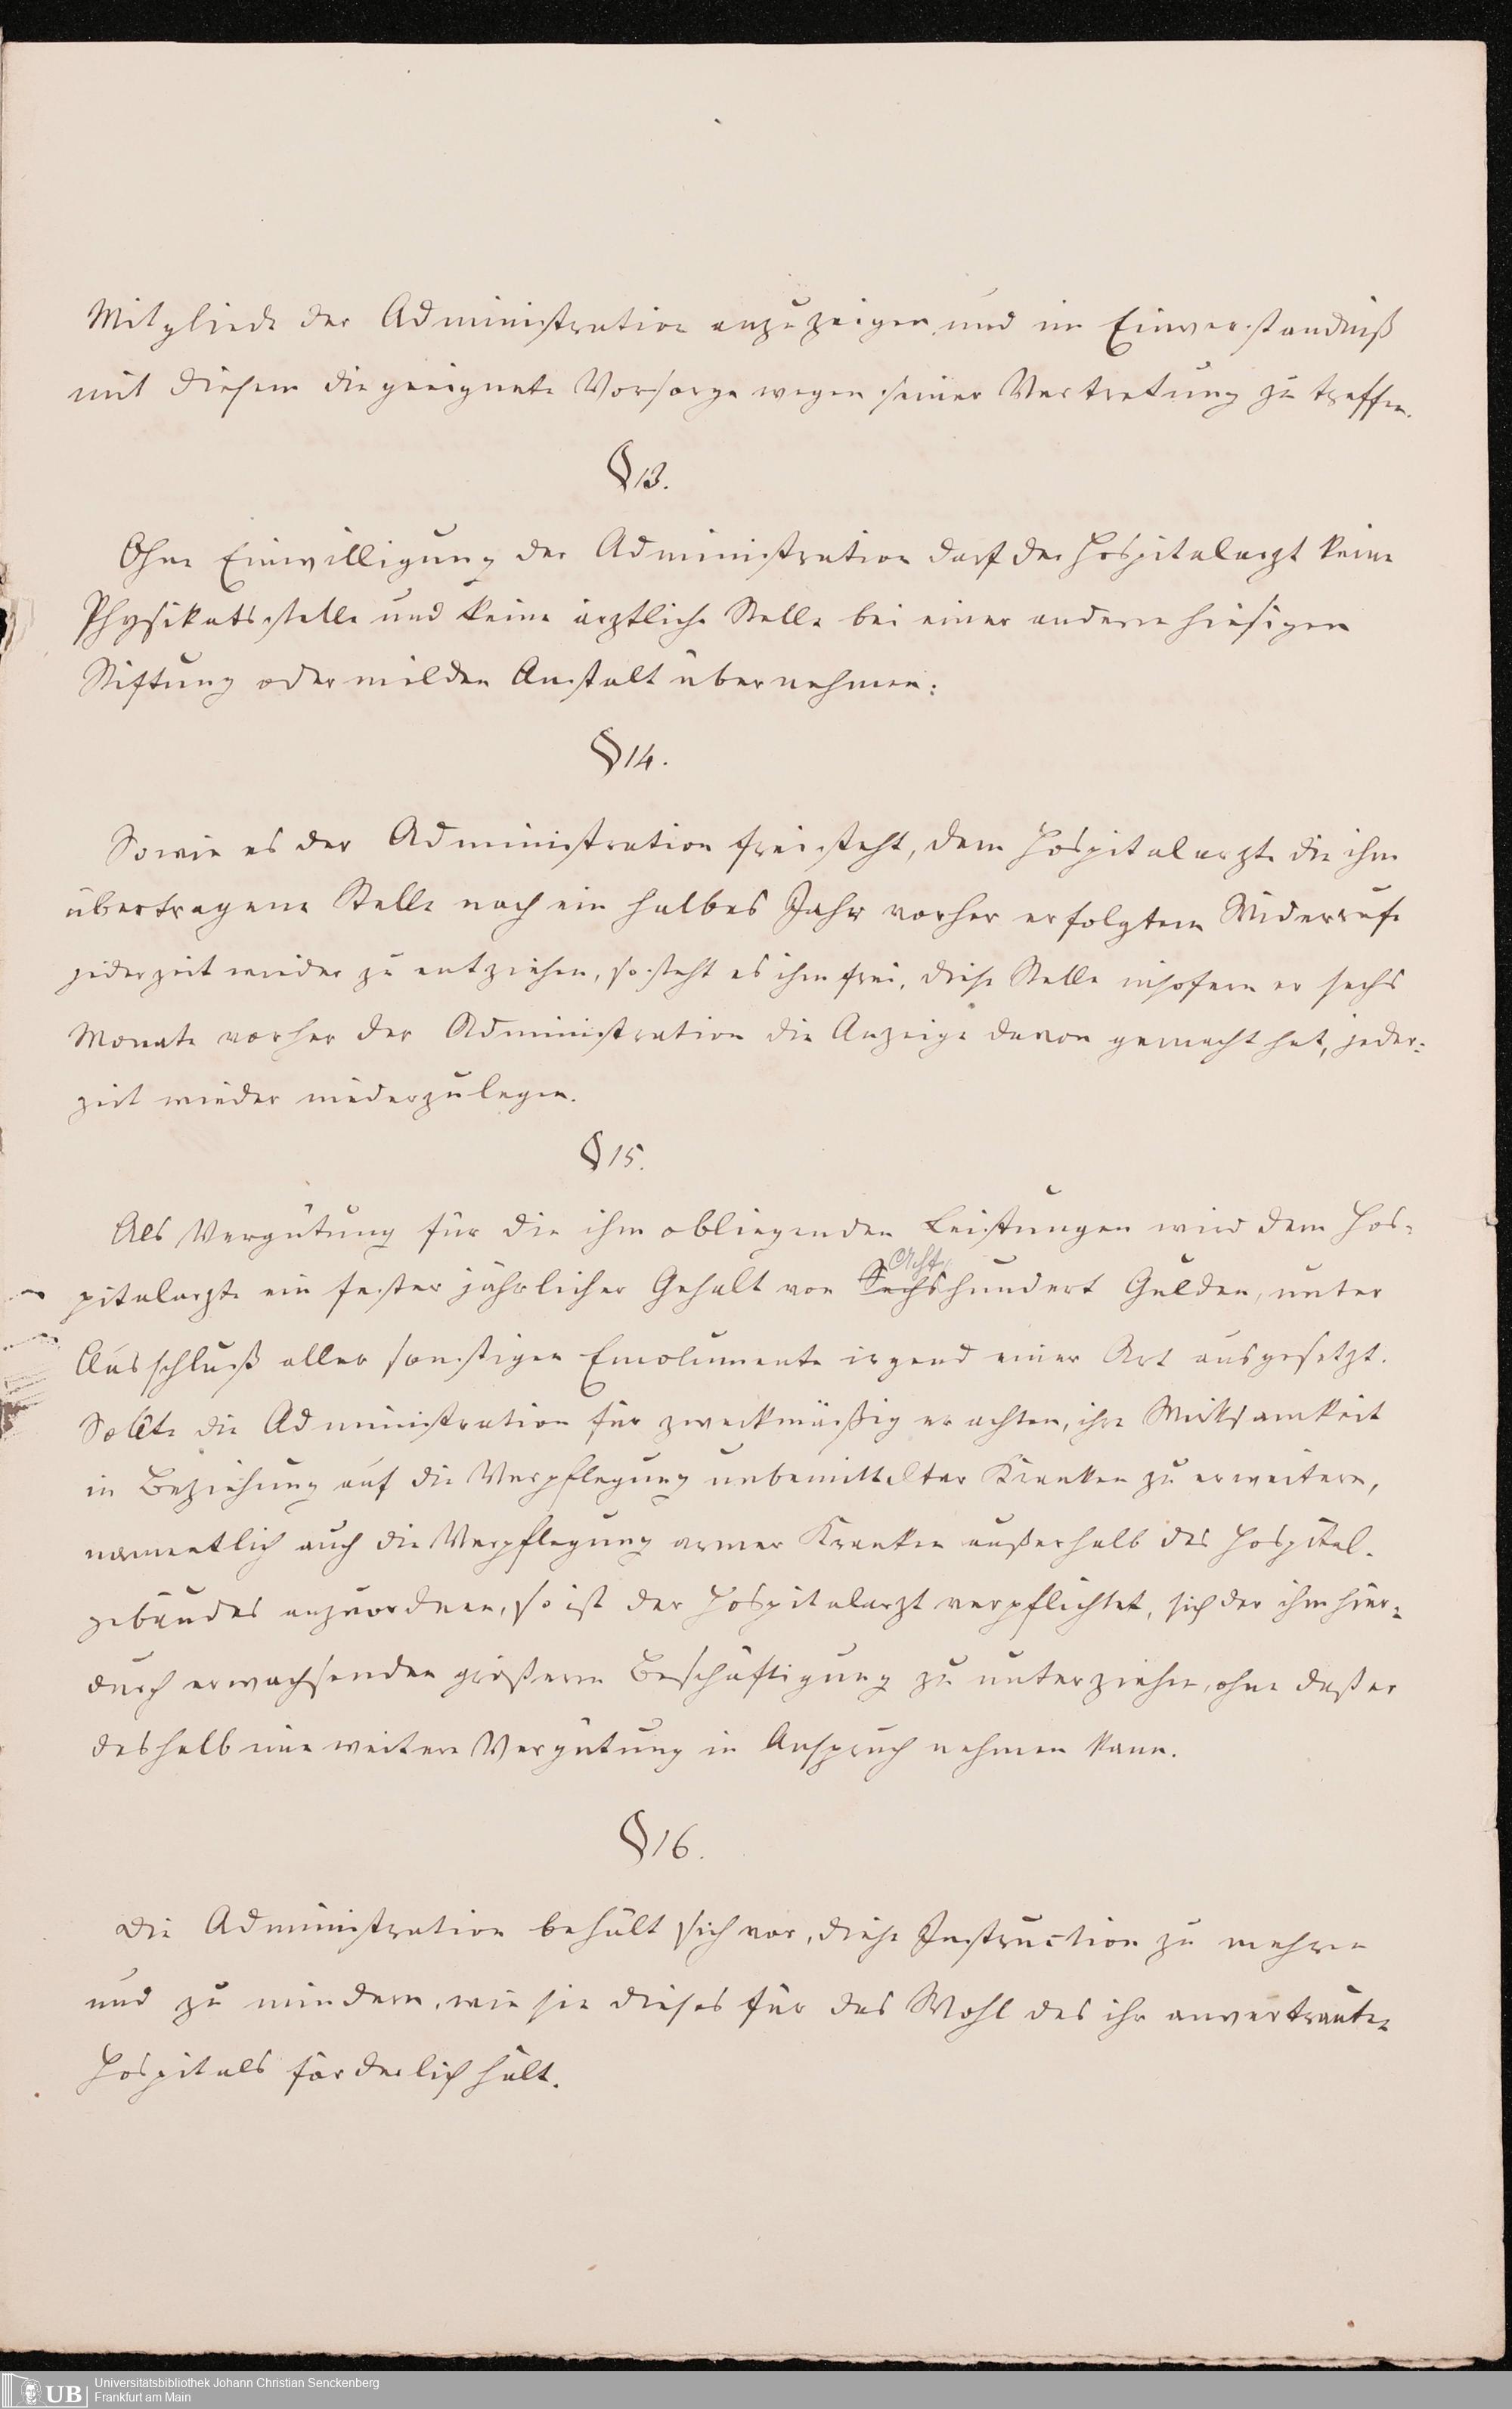 Mitgliede der Administration anzuzeigen und im Einverständniß
mit diesem die geeignete Vorsorge wegen seiner Vertretung zu treffen.
§ 13.
Ohne Einwilligung der Administration darf der Hospitalarzt keine
Physikatsstelle und keine ärztliche Stelle bei einer andern hiesigen
Stiftung oder milden Anstalt übernehmen.
§ 14.
Sowie es der Administration freisteht, dem Hospitalarzte die ihm
übertragene Stelle nach ein halbes Jahr vorher erfolgtem Widerrufe
jederzeit wieder zu entziehen, so steht es ihm frei, diese Stelle insofern er sechs
Monate vorher der Administration die Anzeige davon gemacht hat, jeder-
zeit wieder niederzulegen.
§ 15.
Als Vergütung für die ihm obliegenden Leistungen wird dem Hos-
Acht
pitalarzte ein fester jährlicher Gehalt von Sechshundert Gulden, unter
Ausschluß aller sonstigen Emolumente irgend einer Art ausgesetzt.
Sollte die Administration für zweckmäßig erachten, ihre Wirksamkeit
in Beziehung auf die Verpflegung unbemittelter Kranken zu erweitern,
namentlich auch die Verpflegung armer Kranken außerhalb des Hospital-
gebäudes anzuordnen, so ist der Hospitalarzt verpflichtet, sich der ihm hier-
durch erwachsenden größern Beschäftigung zu unterziehen, ohne daß er
deshalb eine weitere Vergütung in Anspruch nehmen kann.
§ 16.
Die Administration behält sich vor, diese Instruction zu mehren
und zu mindern, wie sie dieses für das Wohl des ihr anvertrauten
Hospitals förderlich hält.
UB
Universitätsbibliothek Johann Christian Senckenberg
Frankfurt am Main